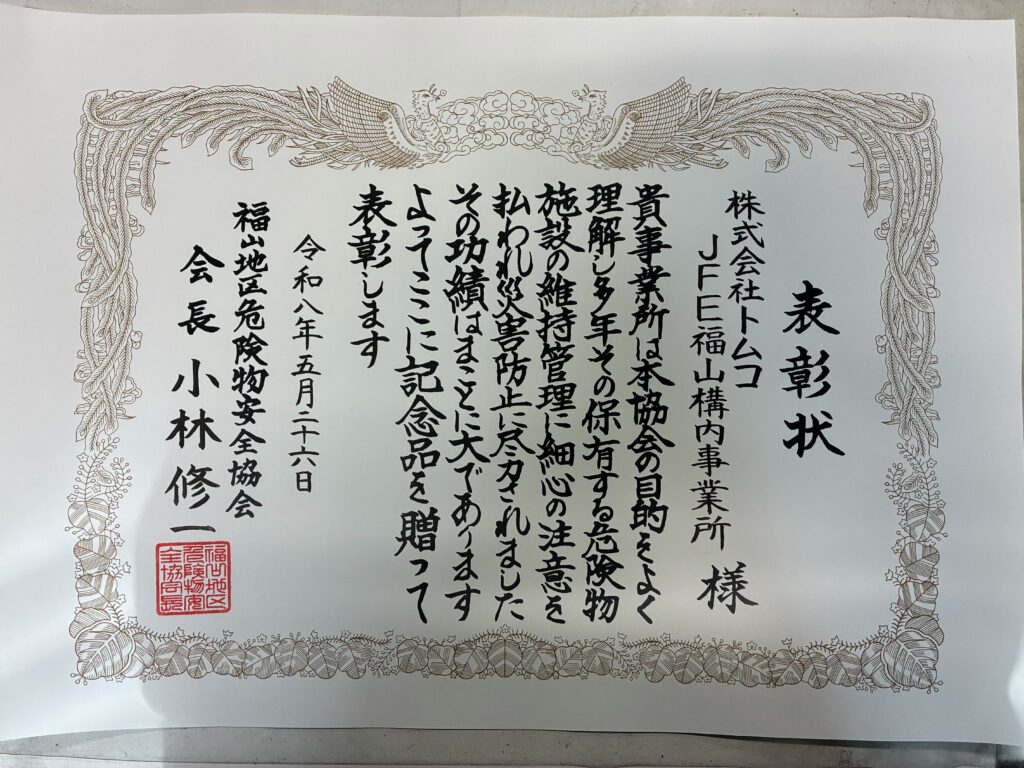 表彰状
株式会社トムコ
JFE福山構内事業所 様
貴事業所は本協会の目的をよく
理解し多年その保有する危険物
施設の維持管理に細心の注意を
払われ災害防止に尽力されました
その功績はまことに大であります
よってここに記念品を贈って
表彰します
令和八年五月二十六日
福山地区危険物安全協会
会長 小林修一
福山地区
危険物安
全協会長